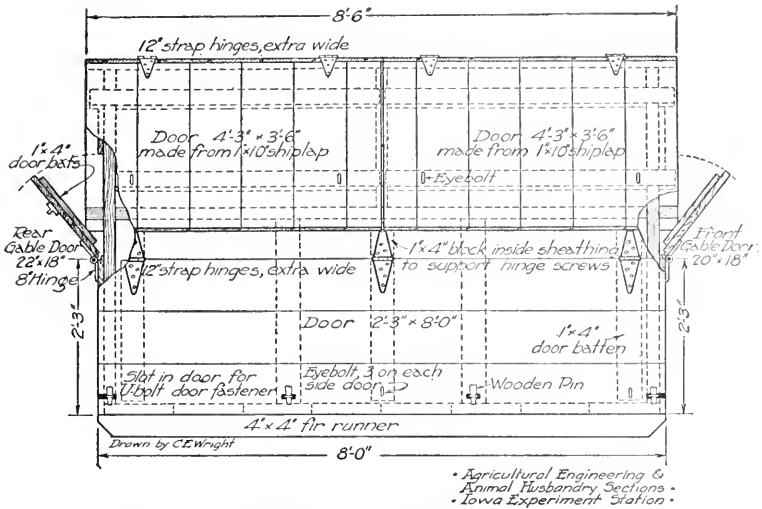 8'-6"
12" strap hinges, extra wide
1"x4"
door bats
Door 4'-3" x 3'-6"
made from 1"x10" shiplap
Door 4'-3" x 3'-6"
made from 1"x10" shiplap
Eyebolt
Rear
Gable Door
22"x18"
8" Hinge
Front
Gable Door
20"x18"
1"x4" block inside sheathing
to support hinge screws
12" strap hinges, extra wide
2'-3"
2'-3"
Door 2'-3" x 8'-0"
1"x4"
door batten
Slot in door for
U-bolt door fastener
Eyebolt, 3 on each
side door
Wooden Pin
4" x 4" fir runner
Drawn by C.E.Wright
8'-0"
• Agricultural Engineering &
Animal Husbandry Sections •
• Iowa Experiment Station •